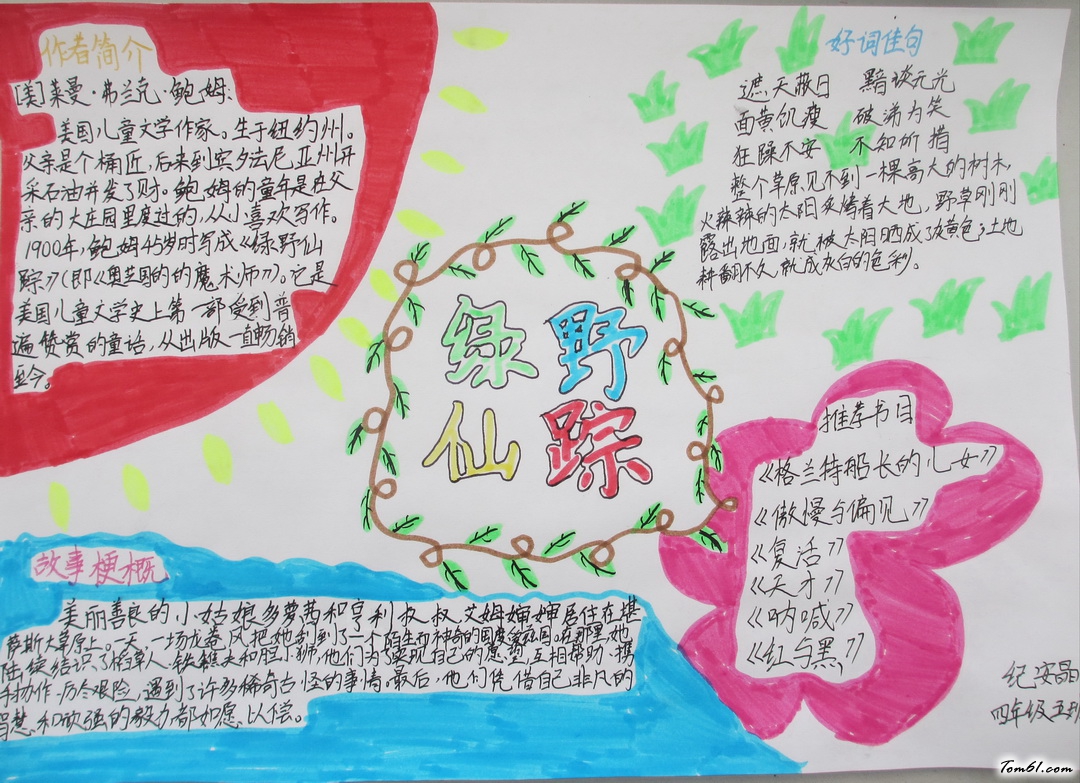 作者简介
[美]莱曼·弗兰克·鲍姆:
美国儿童文学作家。生于纽约州。
父亲是个桶匠，后来到宾夕法尼亚州开
采石油并发了财。鲍姆的童年是在父
亲的大庄园里度过的，从小喜欢写作。
1900年，鲍姆45岁时写成《绿野仙
踪》(即《奥兰国的的魔术师》)。它是
美国儿童文学史上第一部受到普
遍赞赏的童话，从出版一直畅销
至今。
好词佳句
遮天蔽日 黯淡元光
面黄饥瘦 破涕为笑
狂躁不安 不知所措
整个草原见不到一棵高大的树木，
火辣辣的太阳炙烤着大地，野草刚刚
露出地面，就被太阳晒成了灰黄色；土地
耕翻不久，就成灰白的色彩。
绿野
仙踪
推荐书目
《格兰特船长的儿女》
《傲慢与偏见》
《复活》
《天才》
《呐喊》
《红与黑》
故事梗概
美丽善良的小姑娘多萝茜和亨利叔叔、艾姆婶婶居住在堪
萨斯大草原上。一天，一场龙卷风把她刮到了一个陌生而神奇的国度。在那里，她
陆续结识了稻草人、铁樵夫和胆小狮，他们为了实现自己的愿望，互相帮助、携
手协作，历尽艰险，遇到了许多稀奇古怪的事情。最后，他们凭借自己非凡的
智慧和顽强的毅力都如愿以偿。
四年级五班
Tom61.com